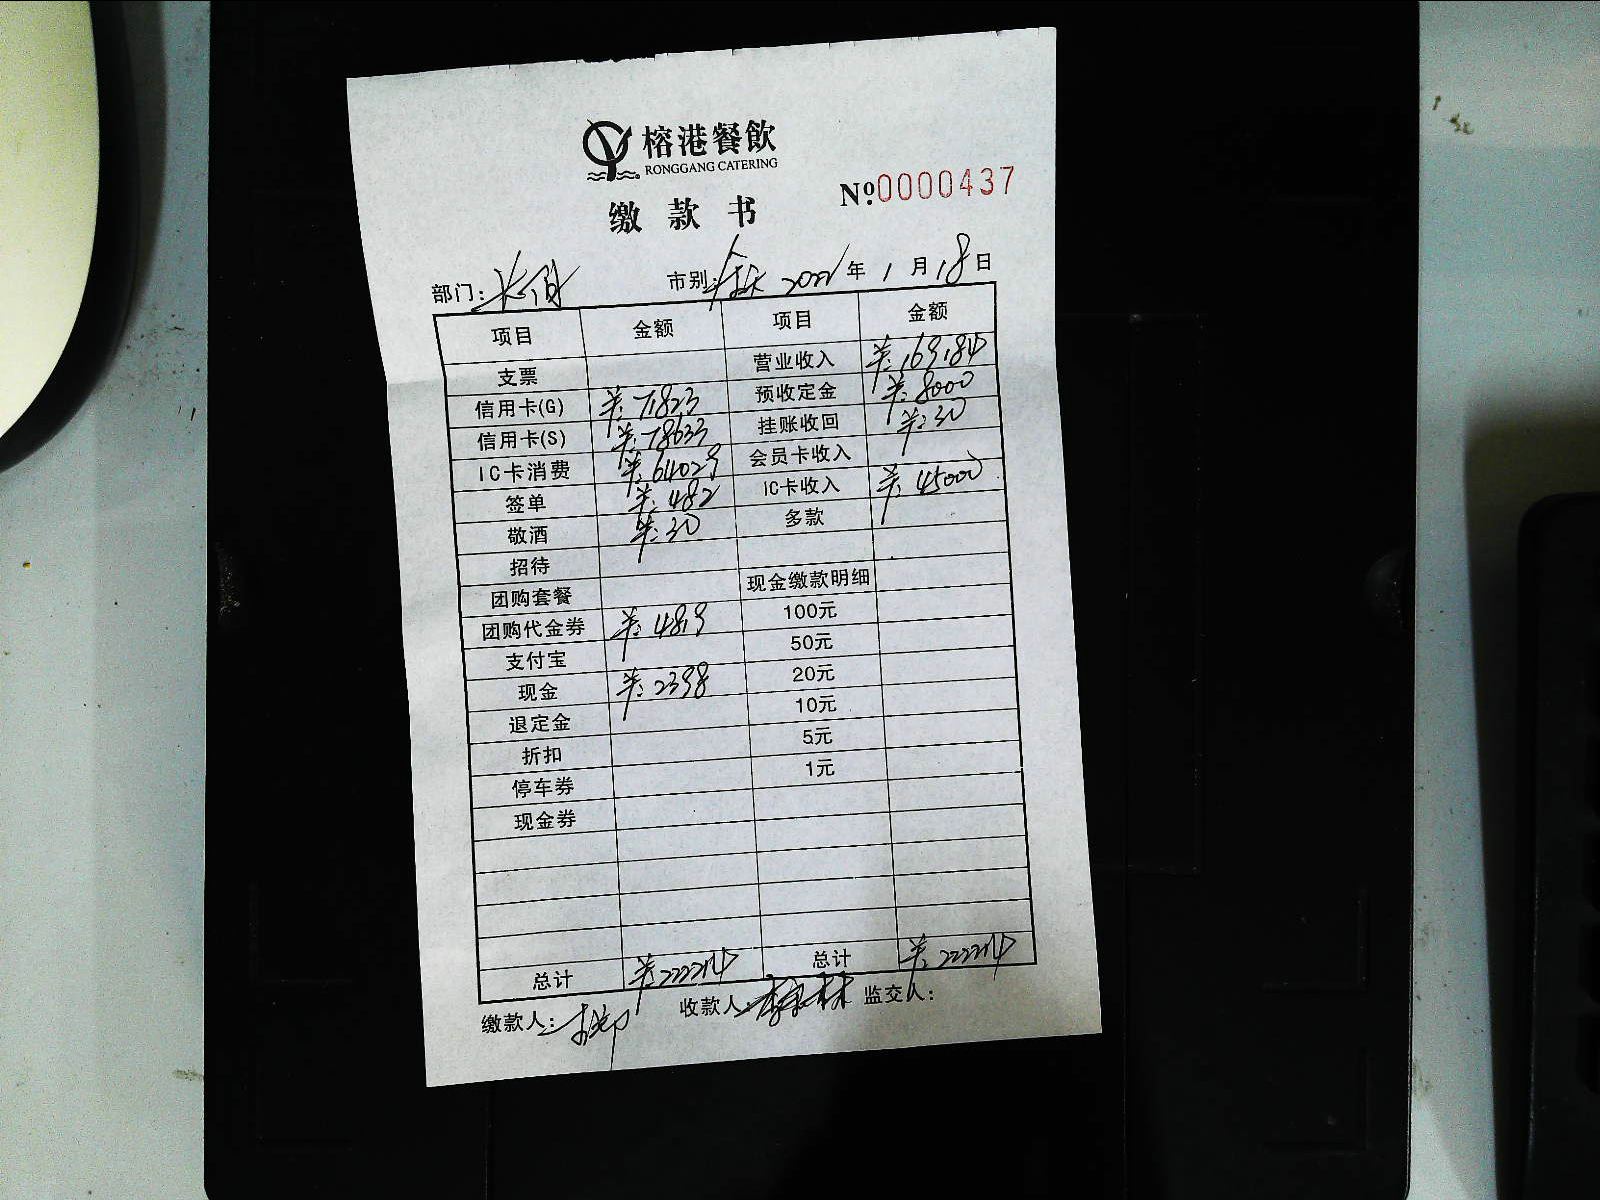 榕港餐飲
RONGGANG CATERING
No:0000437
缴款书
部门: 市别: 全天 2022年1月18日
项目 金额 项目 金额
支票 营业收入 ¥:169184
信用卡(G) ¥:71823 预收定金 ¥:8000
信用卡(S) ¥:78633 挂账收回 ¥:30
IC卡消费 ¥:64029 会员卡收入
签单 ¥:482 IC卡收入 ¥:45000
敬酒 ¥:30 多款
招待
团购套餐 现金缴款明细
团购代金券 ¥:4819 100元
支付宝 50元
现金 ¥:2398 20元
退定金 10元
折扣 5元
停车券 1元
现金券
总计 ¥:222214 总计 ¥:222214
缴款人: 收款人: 监交人: